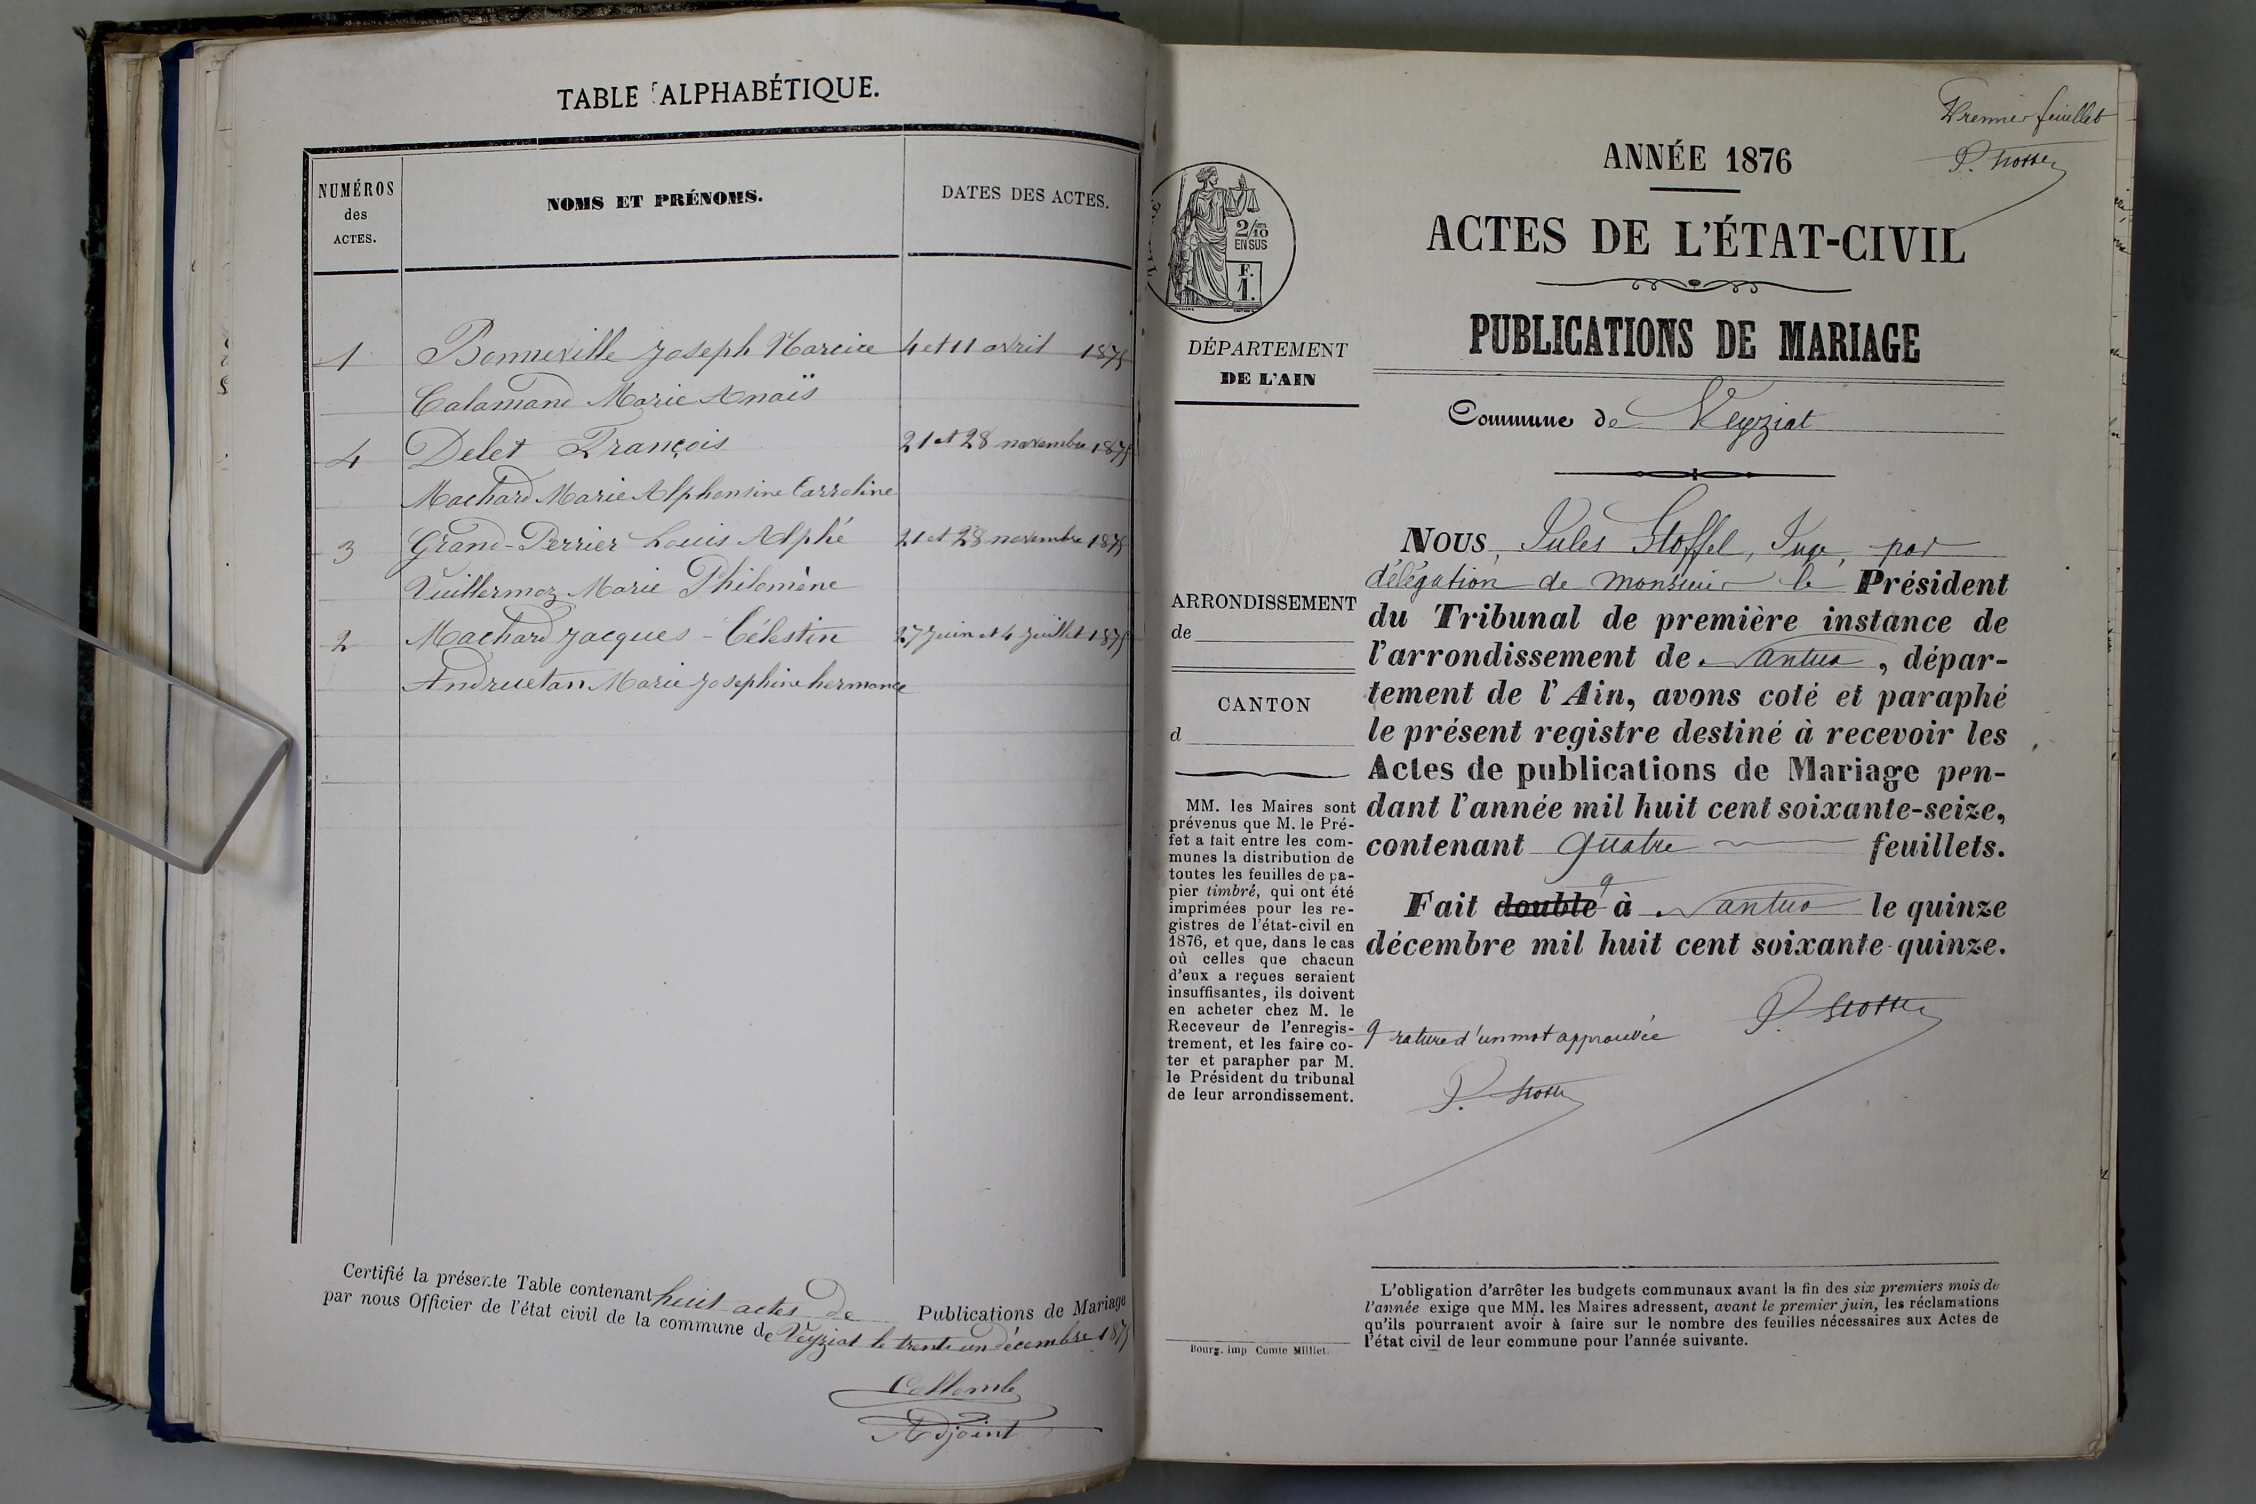 TABLE ALPHABÉTIQUE.
NUMÉROS
des
ACTES.
NOMS ET PRÉNOMS.
DATES DES ACTES.
1 Bonneville Joseph Narcice 4 et 11 avril 1875
Calamand Marie Anaïs
4 Delet François 21 et 28 novembre 1875
Machard Marie Alphonsine Carroline
3 Grand-Perrier Louis Alphé 21 et 28 novembre 1875
Vuillermoz Marie Philomène
2 Machard Jacques-Célestin 27 Juin et 4 Juillet 1875
Andruetan Marie Josephine hermance
Certifié la présente Table contenant huit actes de Publications de Mariage
par nous Officier de l'état civil de la commune de Veyziat le trente un décembre 1875
Collomb
Adjoint
Premier feuillet
ANNÉE 1876
ACTES DE L'ÉTAT-CIVIL
PUBLICATIONS DE MARIAGE
2/10
EN SUS
F.
1.
DÉPARTEMENT
DE L'AIN
Commune de Veyziat
Nous, Jules Stoffel, Juge, par
délégation de monsieur le Président
du Tribunal de première instance de
l'arrondissement de Nantua, dépar-
tement de l'Ain, avons coté et paraphé
le présent registre destiné à recevoir les
Actes de publications de Mariage pen-
dant l'année mil huit cent soixante-seize,
contenant quatre feuillets.
Fait double à Nantua le quinze
décembre mil huit cent soixante-quinze.
rature d'un mot approuvée
ARRONDISSEMENT
de
CANTON
d
MM. les Maires sont
prévenus que M. le Pré-
fet a fait entre les com-
munes la distribution de
toutes les feuilles de pa-
pier timbré, qui ont été
imprimées pour les re-
gistres de l'état-civil en
1876, et que, dans le cas
où celles que chacun
d'eux a reçues seraient
insuffisantes, ils doivent
en acheter chez M. le
Receveur de l'enregis-
trement, et les faire co-
ter et parapher par M.
le Président du tribunal
de leur arrondissement.
Bourg. imp Comte Milliet.
L'obligation d'arrêter les budgets communaux avant la fin des six premiers mois de
l'année exige que MM. les Maires adressent, avant le premier juin, les réclamations
qu'ils pourraient avoir à faire sur le nombre des feuilles nécessaires aux Actes de
l'état civil de leur commune pour l'année suivante.